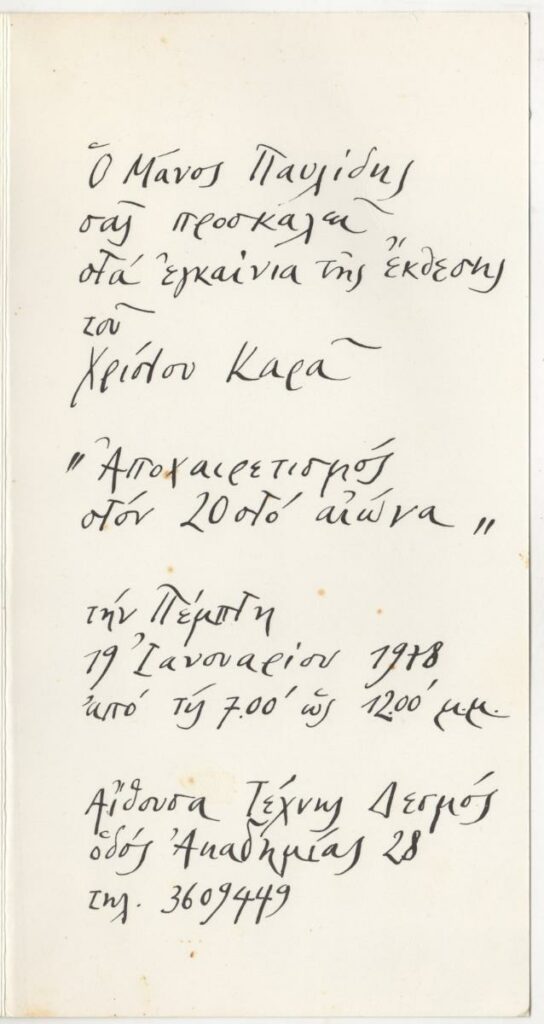 Ὁ Μάνος Παυλίδης
σᾶς προσκαλεῖ
στά ἐγκαίνια τῆς ἔκθεσης
τοῦ
Χρίστου Καρᾶ
"Ἀποχαιρετισμός
στόν 20στό αἰώνα"
τήν Πέμπτη
19 Ἰανουαρίου 1978
ἀπό τίς 7.00' ὥς 12.00' μ.μ.
Αἴθουσα Τέχνης Δεσμός
ὁδός Ἀκαδημίας 28
τηλ. 3609449